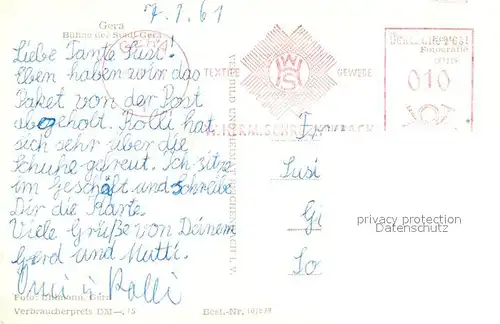 7.1.61
Gera
Bühne der Stadt Gera
Liebe Tante Susi!
Eben haben wir das
Paket von der Post
abgeholt. Rolli hat
sich sehr über die
Schuhe gefreut. Ich sitze
im Geschäft und schreibe
Dir die Karte.
Viele Grüße von Deinem
Gerd und Mutti.
Omi u Rolli
Foto: Uhlmann, Gera
Verbraucherpreis DM —,15
Best.-Nr.
VERLAG BILD UND HEIMAT REICHENBACH I. V.
GERA
TEXTIL
GEWEBE
WS
Deutsche Post
010
Susi
privacy protection
Datenschutz